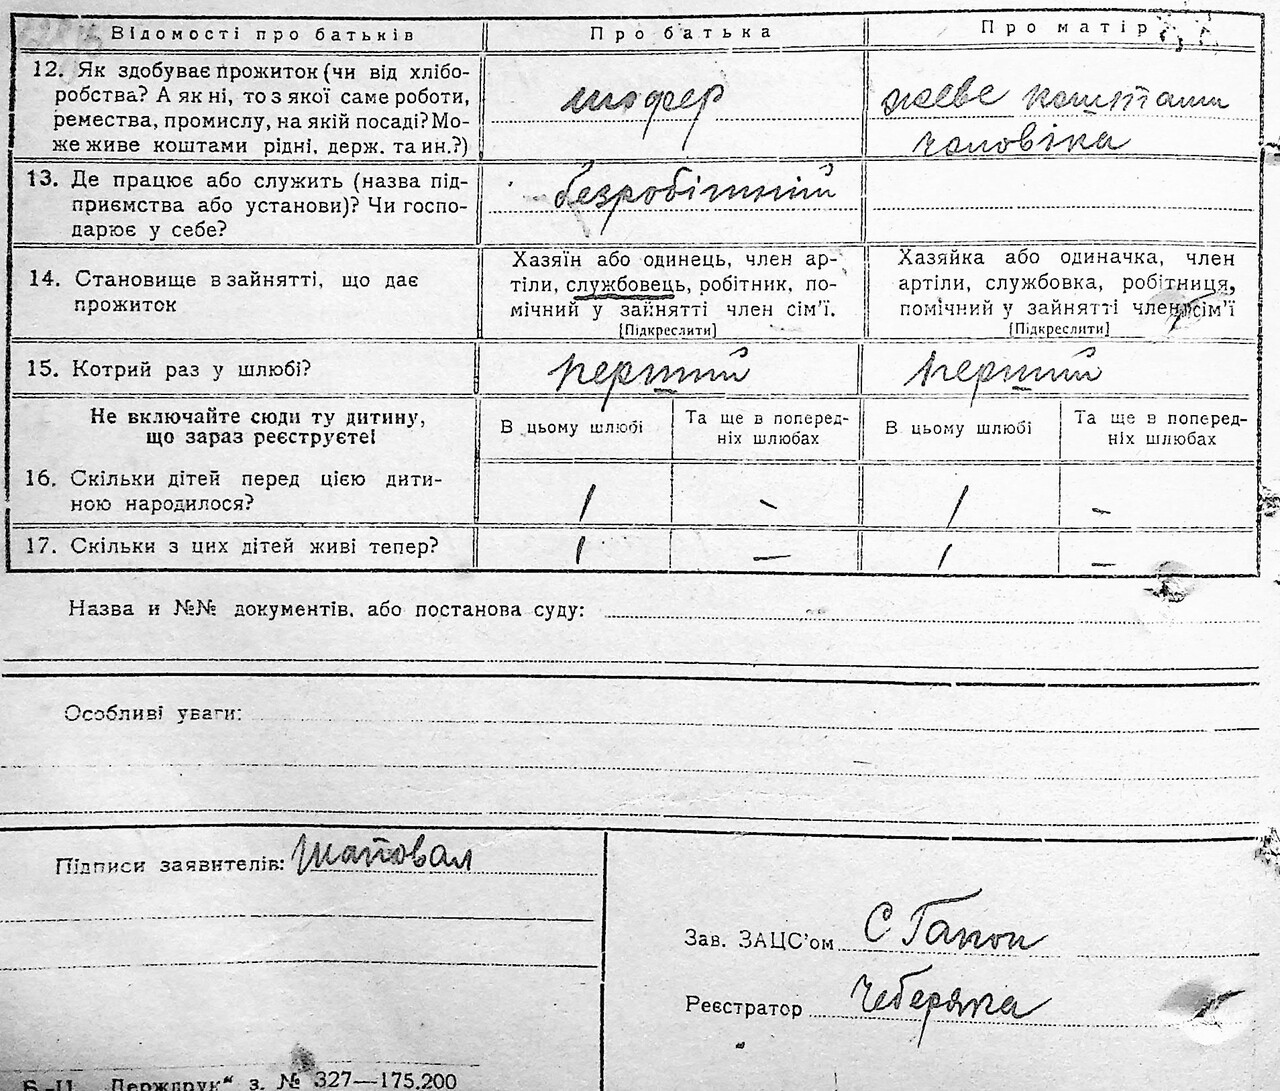 Відомості про батьків
Про батька
Про матір
12. Як здобуває прожиток (чи від хлібо-
робства? А як ні, то з якої саме роботи,
ремества, промислу, на якій посаді? Мо-
же живе коштами рідні. держ. та ин.?)
шофер
живе коштами
чоловіка
13. Де працює або служить (назва під-
приємства або установи)? Чи госпо-
дарює у себе?
безробітний
14. Становище в зайнятті, що дає
прожиток
Хазяїн або одинець, член ар-
тіли, службовець, робітник, по-
мічний у зайнятті член сім'ї.
[Підкреслити]
Хазяйка або одиначка, член
артіли, службовка, робітниця,
помічний у зайнятті член сім'ї
[Підкреслити]
15. Котрий раз у шлюбі?
перший
перший
Не включайте сюди ту дитину,
що зараз реєструєте!
В цьому шлюбі
Та ще в поперед-
ніх шлюбах
В цьому шлюбі
Та ще в поперед-
ніх шлюбах
16. Скільки дітей перед цією дити-
ною народилося?
1
-
1
-
17. Скільки з цих дітей живі тепер?
1
-
1
-
Назва и №№ документів, або постанова суду:
Особливі уваги:
Підписи заявителів: Шаповал
Зав. ЗАЦС'ом С Гапон
Реєстратор Чеберяка
Б.-Ц. „Держдрук“ з. № 327—175.200